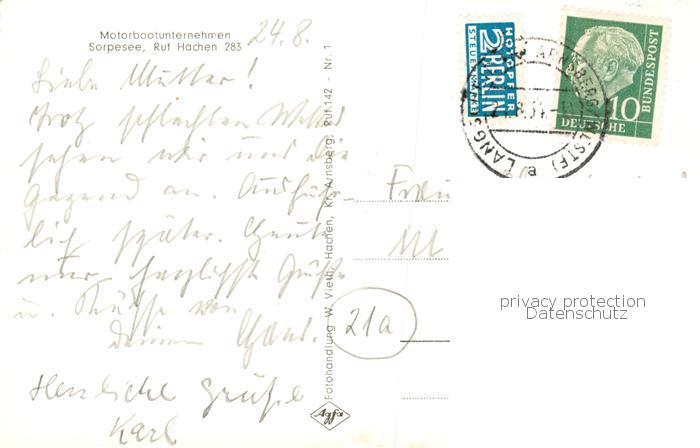 Motorbootunternehmen
Sorpesee, Ruf Hachen 283
24.8.
Liebe Mutter!
Trotz schlechten Wetters
sehen wir uns die
Gegend an. Ausführ-
lich später. Heute
nur herzlichste Grüße
u. Küsse von
Deinem Hans.
Herzliche Grüße
Karl
Fotohandlung W. Vieth, Hachen, Kr. Arnsberg, Ruf 142 - Nr. 1
Agfa
NOTOPFER
2 BERLIN
STEUERMARKE
DEUTSCHE
BUNDESPOST
10
ARNSBERG
LANGS
Frau
M
21a
privacy protection
Datenschutz